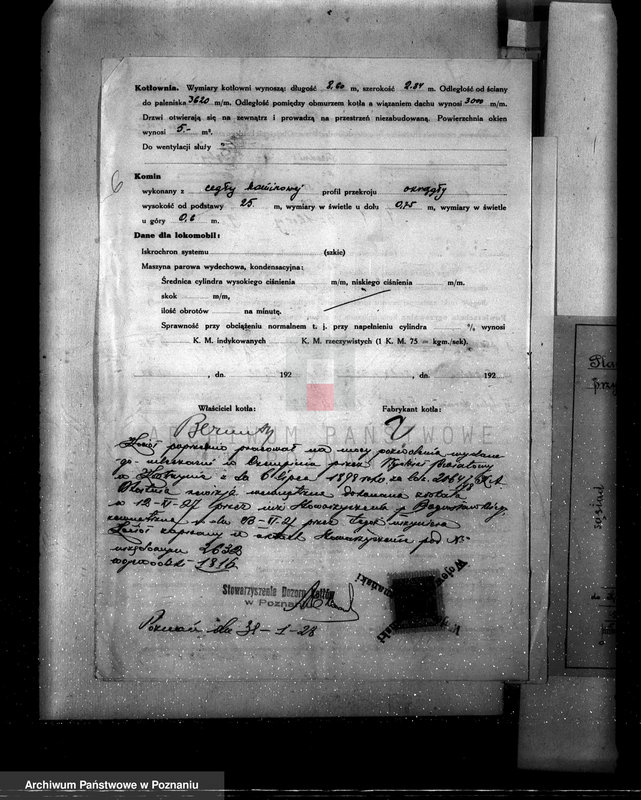 Kotłownia. Wymiary kotłowni wynoszą: długość 9.20 m, szerokość 2.84 m. Odległość od ściany
do paleniska 3620 m/m. Odległość pomiędzy obmurzem kotła a wiązaniem dachu wynosi 3000 m/m.
Drzwi otwierają się na zewnątrz i prowadzą na przestrzeń niezabudowaną. Powierzchnia okien
wynosi 5.- m².
Do wentylacji służy "
6
Komin
wykonany z cegły kominowej profil przekroju okrągły
wysokość od podstawy 25 m, wymiary w świetle u dołu 0,75 m, wymiary w świetle
u góry 0,6 m.
Dane dla lokomobil:
Iskrochron systemu (szkic)
Maszyna parowa wydechowa, kondensacyjna:
Średnica cylindra wysokiego ciśnienia m/m, niskiego ciśnienia m/m.
skok m/m,
ilość obrotów na minutę.
Sprawność przy obciążeniu normalnem t. j. przy napełnieniu cylindra % wynosi
K. M. indykowanych K. M. rzeczywistych (1 K. M. 75 = kgm./sek).
, dn. 192 , dn. 192
Właściciel kotła: Fabrykant kotła:
ARCHIWUM PAŃSTWOWE
Kocioł poprzednio pracował na mocy pozwolenia wydane
go mleczarni w przez
w z d. 6 lipca 1898 roku za Lcz. 2064/98
rewizja wewnętrzna dokonana została
w 12-VI-27 przez inż Stowarzyszenia p.
zewnętrzna w dn 03-VI-27 przez tegoż inżyniera
Kocioł zapisany w aktach Stowarzyszenia pod №
2632
1816
Stowarzyszenie Dozoru Kotłów
w Poznaniu
Poznań dn 31-1-28
sąsiad
Archiwum Państwowe w Poznaniu